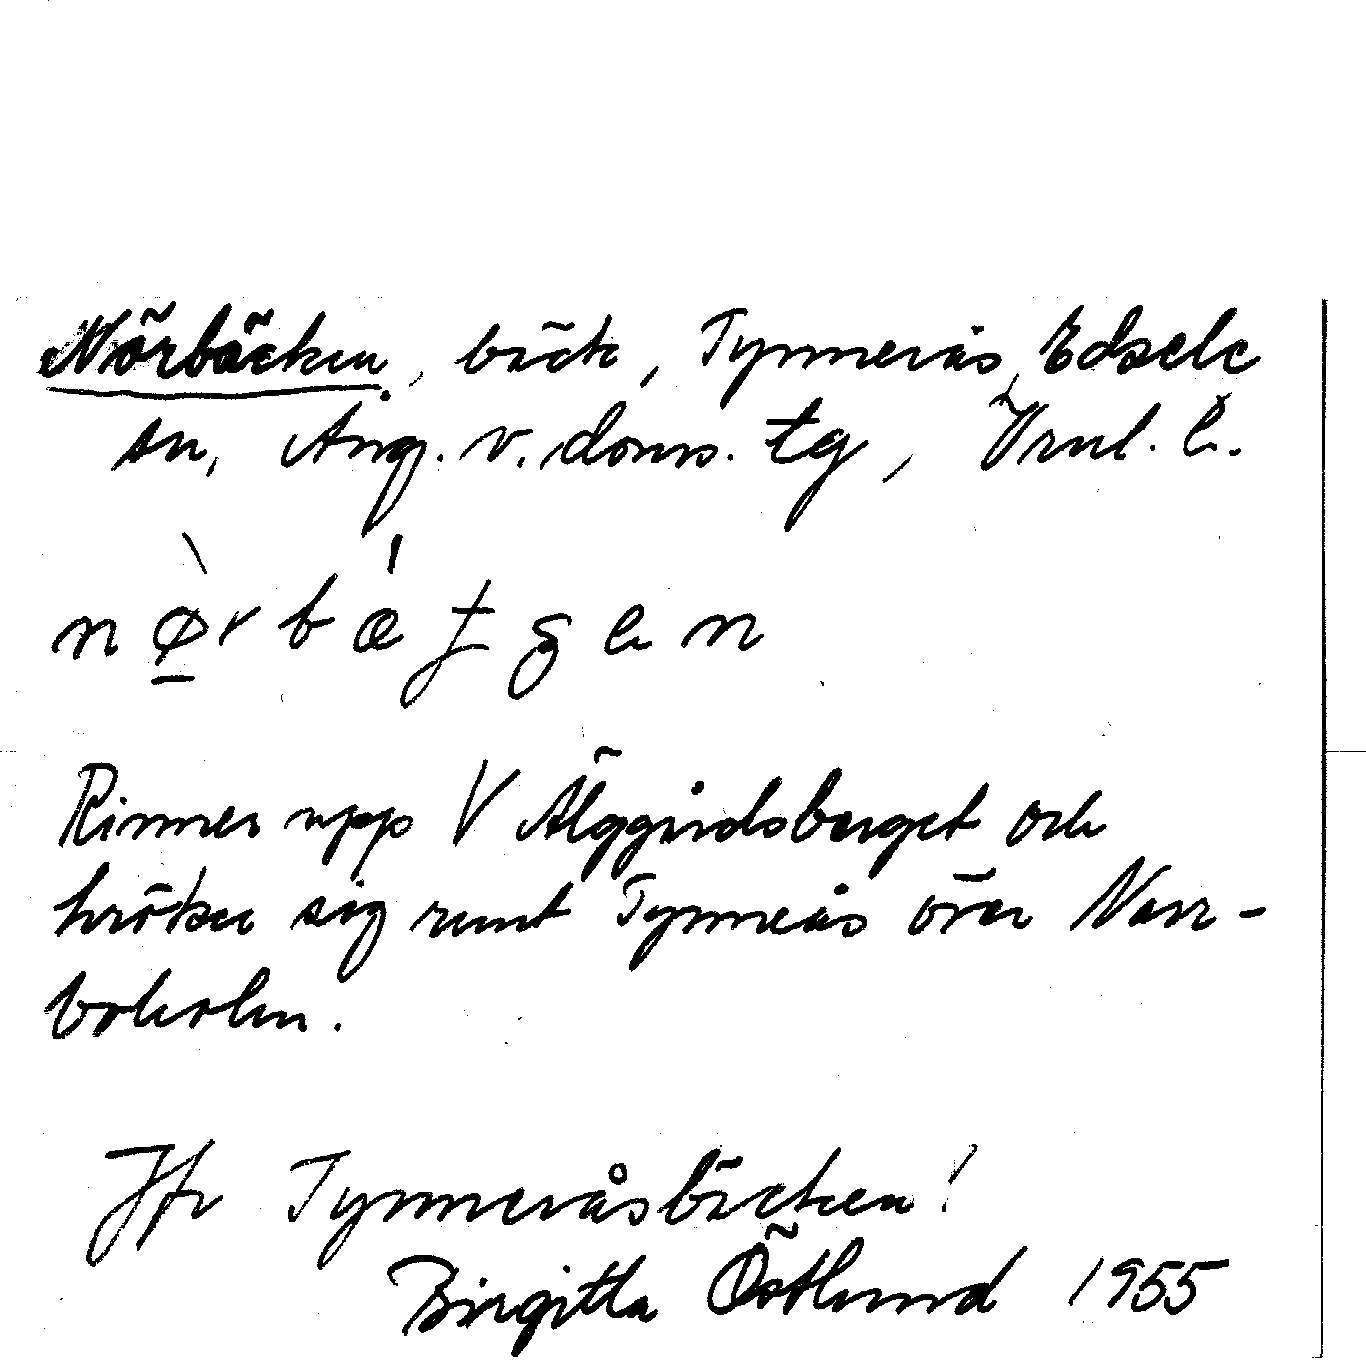 Nörbäcken, bäck, Tynnerås, Edsele
sn, Ång. v. doms. tg, Vrnl. l.
nø̠̀rbǽʈgen
Rinner upp V Älggårdsberget och
kröker sig runt Tynnerås över Norr-
boknoln.
Jfr Tynneråsbäcken!
Birgitta Östlund 1955